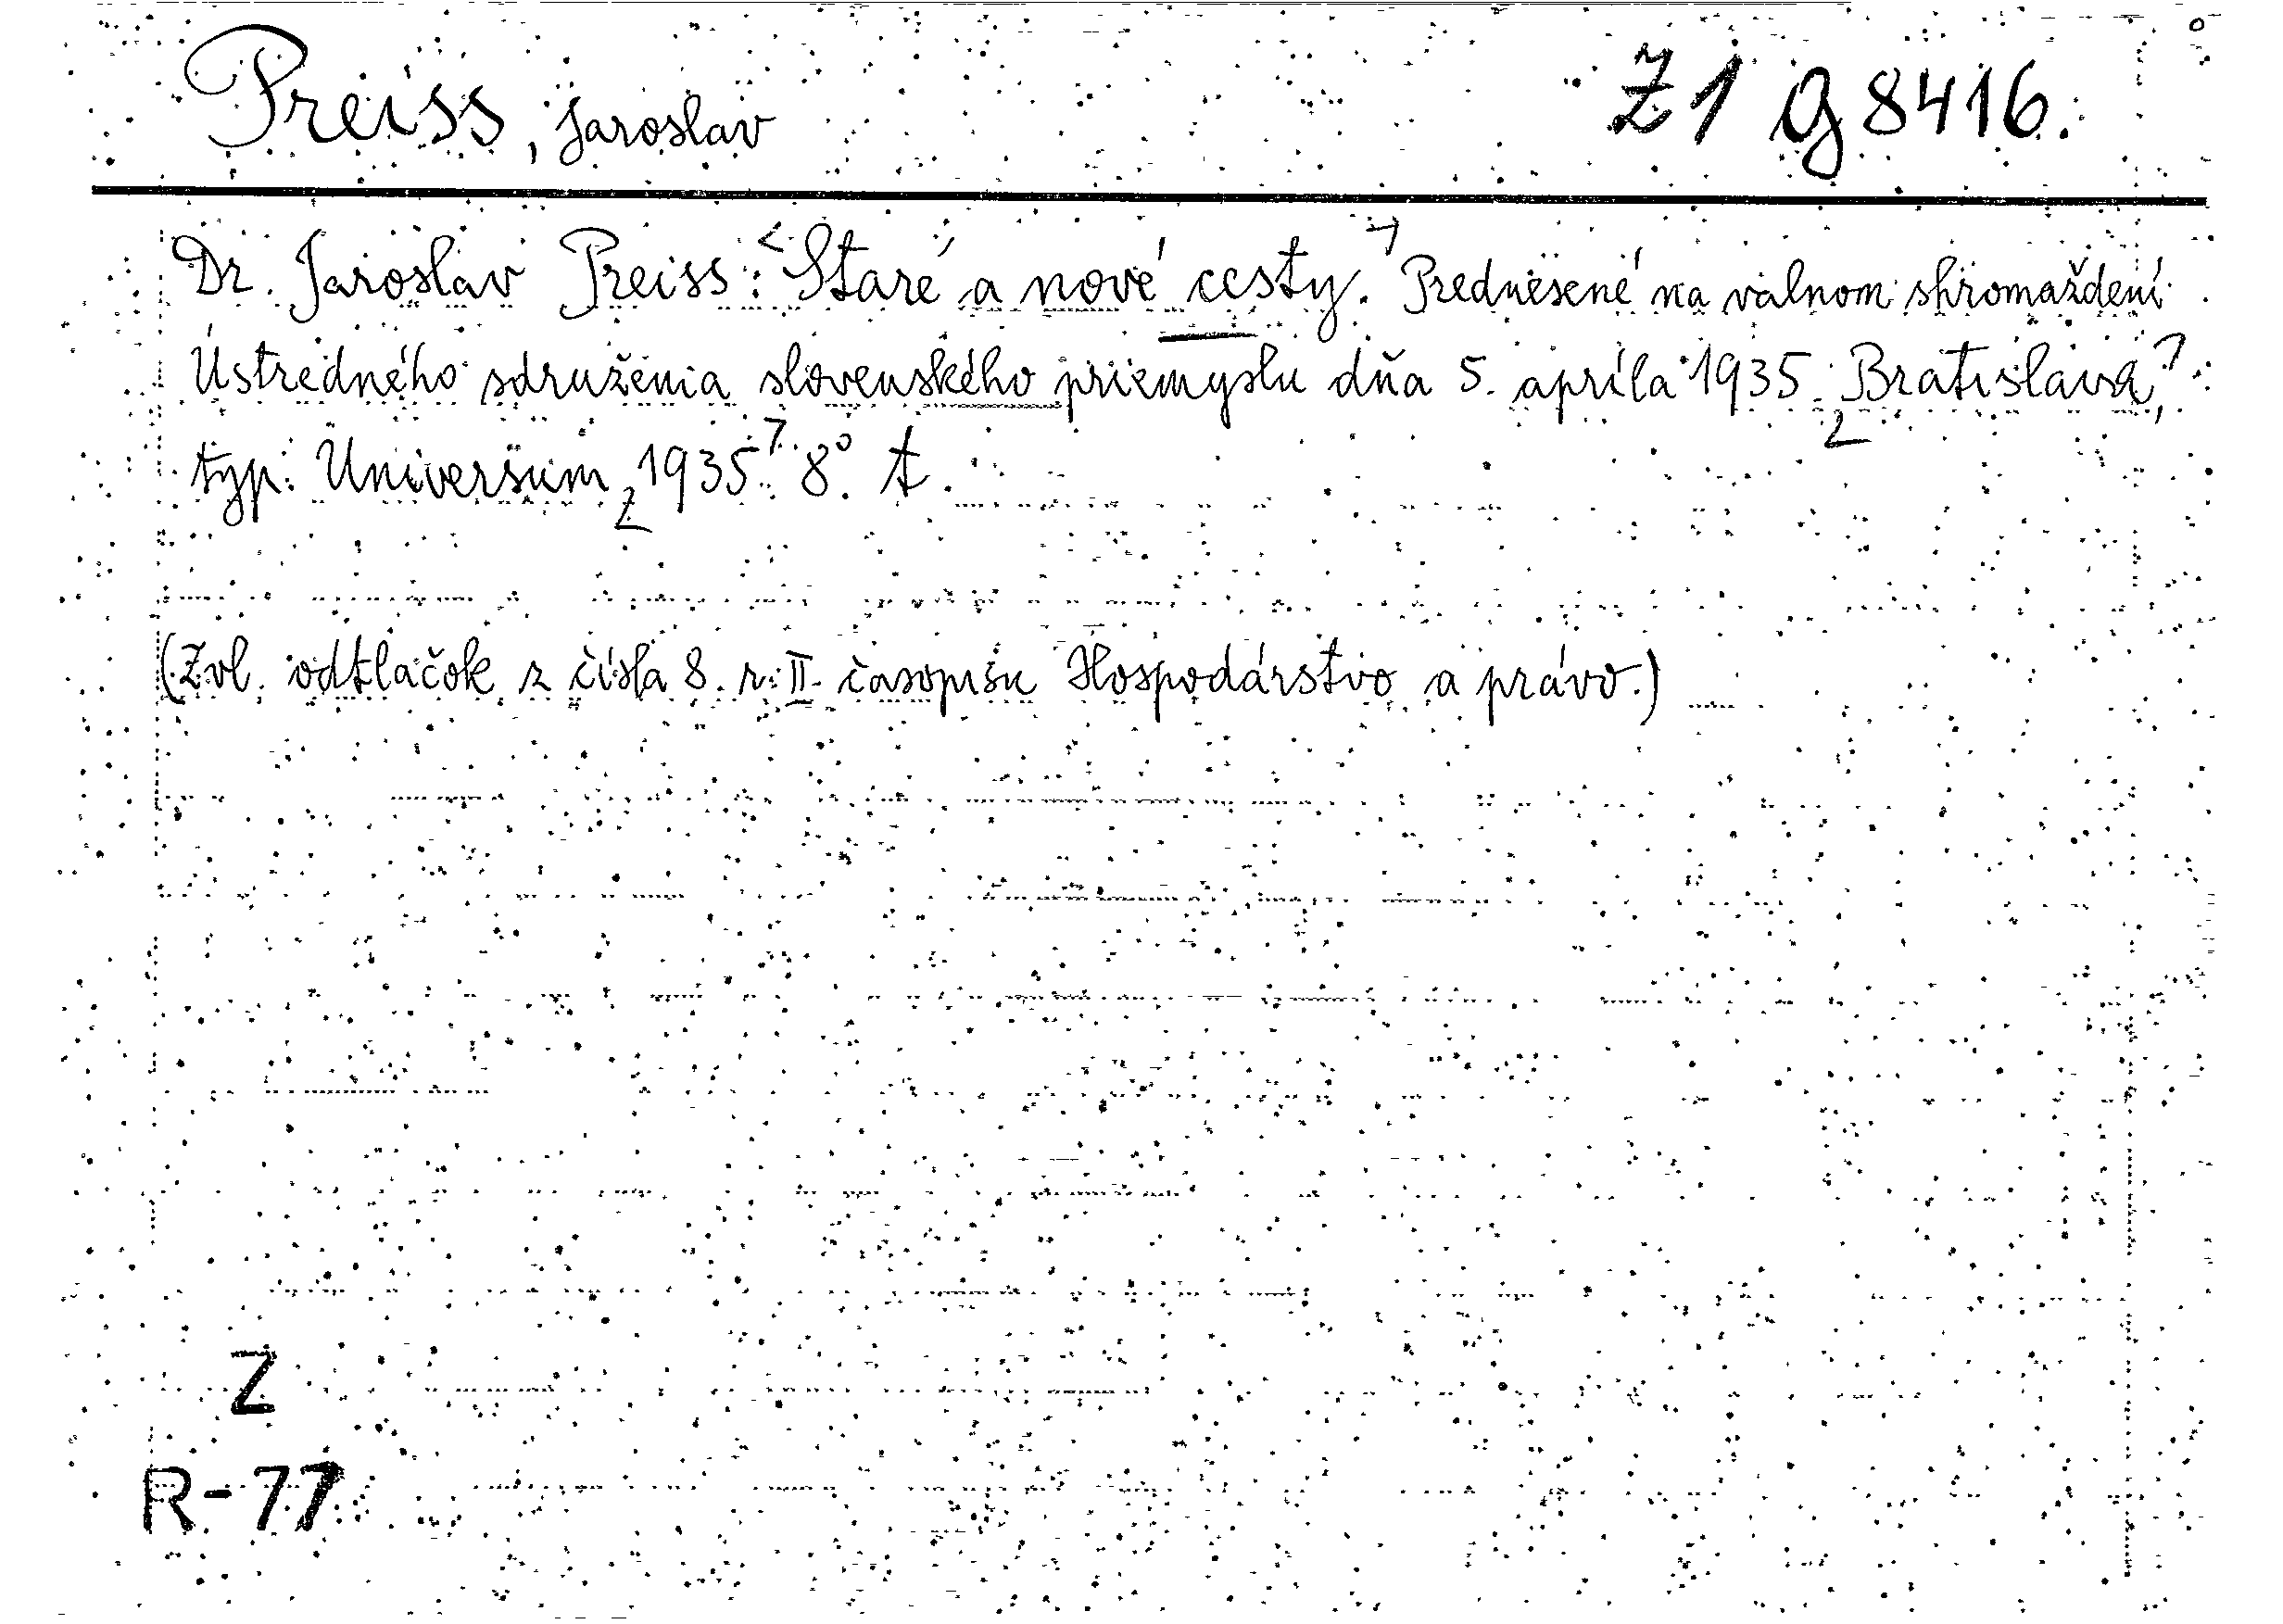 Preiss, Jaroslav Z1 g 8416.
Dr. Jaroslav Preiss: Staré a nové cesty. Prednesené na valnom shromaždení
Ústredného sdruženia slovenského priemyslu dňa 5. apríla 1935. Bratislava,
typ. Universum, 1935. 8° t.
(Zvl. odtlačok z čísla 8. r. II. časopisu Hospodárstvo a právo.)
Z
R-77